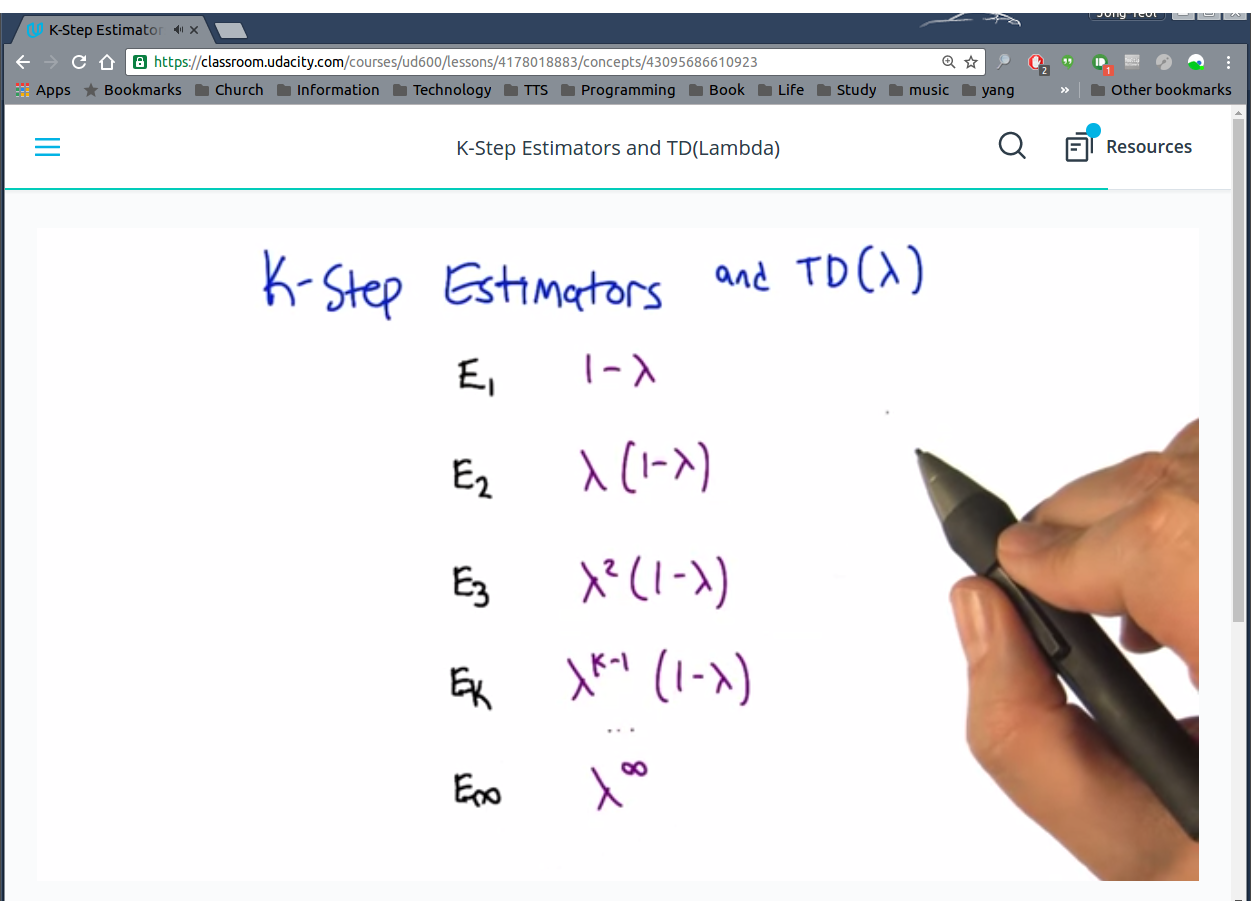 K-Step Estimator
https://classroom.udacity.com/courses/ud600/lessons/4178018883/concepts/43095686610923
2
1
Apps Bookmarks Church Information Technology TTS Programming Book Life Study music yang » Other bookmarks
K-Step Estimators and TD(Lambda)
Resources
K-Step Estimators and TD(λ)
E₁ 1-λ
E₂ λ(1-λ)
E₃ λ²(1-λ)
Eₖ λᴷ⁻¹(1-λ)
...
E∞ λ^∞